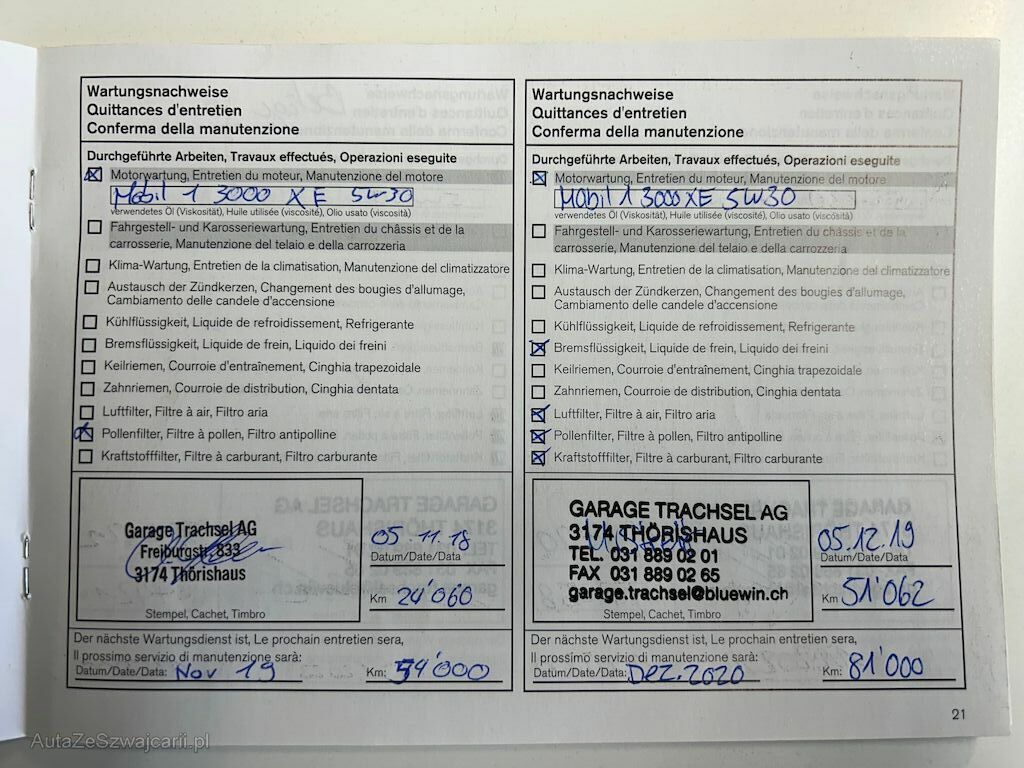 Wartungsnachweise
Quittances d'entretien
Conferma della manutenzione
Durchgeführte Arbeiten, Travaux effectués, Operazioni eseguite
Motorwartung, Entretien du moteur, Manutenzione del motore
Mobil 1 3000 XE 5W30
verwendetes Öl (Viskosität), Huile utilisée (viscosité), Olio usato (viscosità)
Fahrgestell- und Karosseriewartung, Entretien du châssis et de la
carrosserie, Manutenzione del telaio e della carrozzeria
Klima-Wartung, Entretien de la climatisation, Manutenzione del climatizzatore
Austausch der Zündkerzen, Changement des bougies d'allumage,
Cambiamento delle candele d'accensione
Kühlflüssigkeit, Liquide de refroidissement, Refrigerante
Bremsflüssigkeit, Liquide de frein, Liquido dei freini
Keilriemen, Courroie d'entraînement, Cinghia trapezoidale
Zahnriemen, Courroie de distribution, Cinghia dentata
Luftfilter, Filtre à air, Filtro aria
Pollenfilter, Filtre à pollen, Filtro antipolline
Kraftstofffilter, Filtre à carburant, Filtro carburante
Garage Trachsel AG
Freiburgstr. 833
3174 Thörishaus
Stempel, Cachet, Timbro
05.11.18
Datum/Date/Data
Km 24'060
Der nächste Wartungsdienst ist, Le prochain entretien sera,
Il prossimo servizio di manutenzione sarà:
Datum/Date/Data: Nov 19 Km: 54'000
Wartungsnachweise
Quittances d'entretien
Conferma della manutenzione
Durchgeführte Arbeiten, Travaux effectués, Operazioni eseguite
Motorwartung, Entretien du moteur, Manutenzione del motore
Mobil 1 3000 XE 5W30
verwendetes Öl (Viskosität), Huile utilisée (viscosité), Olio usato (viscosità)
Fahrgestell- und Karosseriewartung, Entretien du châssis et de la
carrosserie, Manutenzione del telaio e della carrozzeria
Klima-Wartung, Entretien de la climatisation, Manutenzione del climatizzatore
Austausch der Zündkerzen, Changement des bougies d'allumage,
Cambiamento delle candele d'accensione
Kühlflüssigkeit, Liquide de refroidissement, Refrigerante
Bremsflüssigkeit, Liquide de frein, Liquido dei freini
Keilriemen, Courroie d'entraînement, Cinghia trapezoidale
Zahnriemen, Courroie de distribution, Cinghia dentata
Luftfilter, Filtre à air, Filtro aria
Pollenfilter, Filtre à pollen, Filtro antipolline
Kraftstofffilter, Filtre à carburant, Filtro carburante
GARAGE TRACHSEL AG
3174 THÖRISHAUS
TEL. 031 889 02 01
FAX 031 889 02 65
garage.trachsel@bluewin.ch
Stempel, Cachet, Timbro
05.12.19
Datum/Date/Data
Km 51'062
Der nächste Wartungsdienst ist, Le prochain entretien sera,
Il prossimo servizio di manutenzione sarà:
Datum/Date/Data: Dez. 2020 Km: 81'000
21
AutaZeSzwajcarii.pl